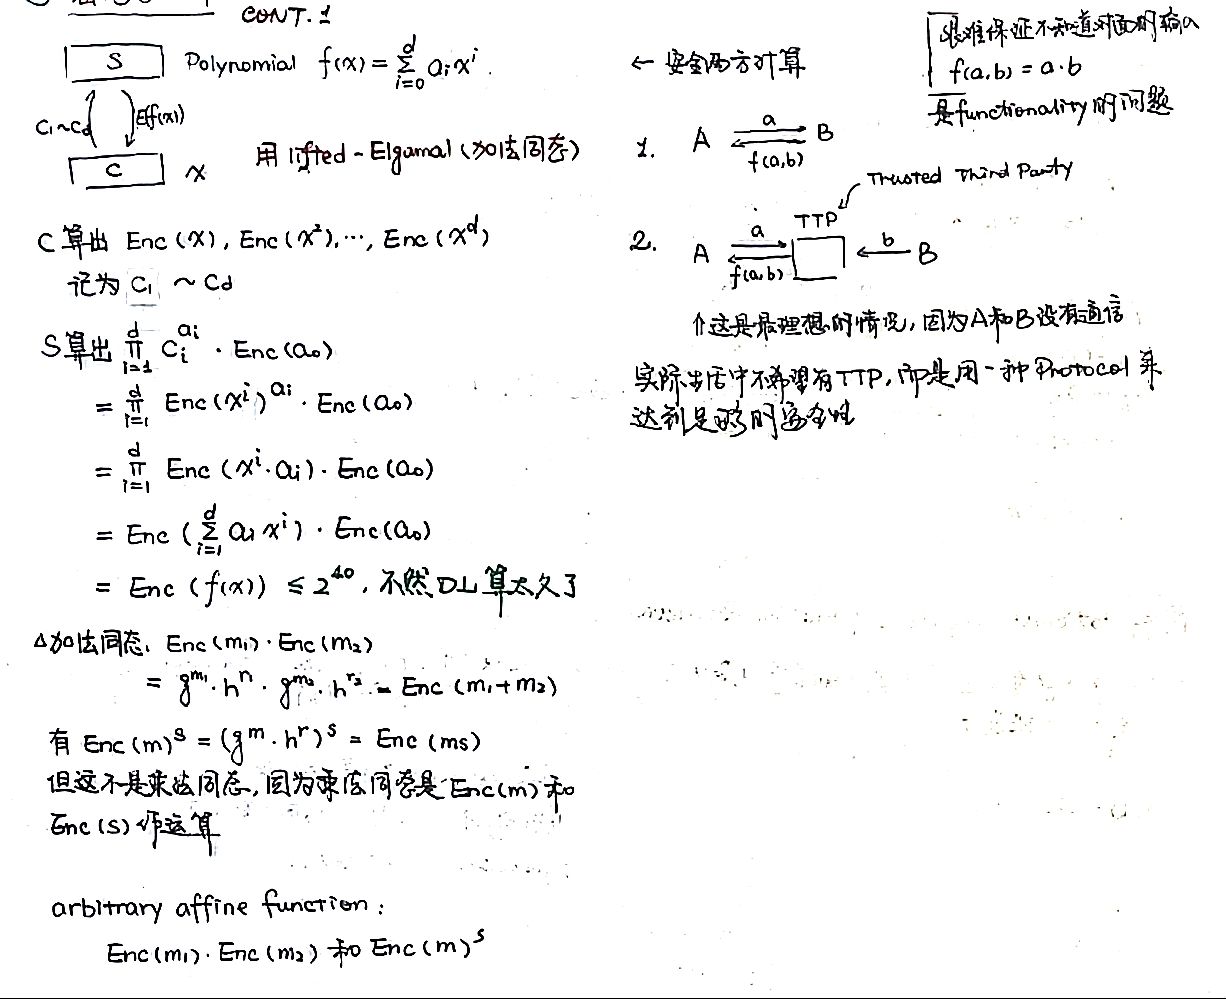 CONT. 1
S Polynomial f(x) = \sum_{i=0}^{d} a_i x^i
C₁~Cd E(f(x))
C x 用 lifted-Elgamal (加法同态)
C 算出 Enc(x), Enc(x²), ..., Enc(x^d)
记为 C₁ ~ Cd
S 算出 \prod_{i=1}^{d} C_i^{a_i} · Enc(a₀)
= \prod_{i=1}^{d} Enc(x^i)^{a_i} · Enc(a₀)
= \prod_{i=1}^{d} Enc(x^i · a_i) · Enc(a₀)
= Enc(\sum_{i=1}^{d} a_i x^i) · Enc(a₀)
= Enc(f(x)) ≤ 2^{40}, 不然 DL 算太久了
△加法同态, Enc(m₁) · Enc(m₂)
= g^{m₁} · h^{r₁} · g^{m₂} · h^{r₂} = Enc(m₁+m₂)
有 Enc(m)^s = (g^m · h^r)^s = Enc(ms)
但这不是乘法同态, 因为乘法同态是 Enc(m) 和
Enc(s) 作运算
arbitrary affine function:
Enc(m₁) · Enc(m₂) 和 Enc(m)^s
← 安全两方计算
很难保证不知道对面的输入
f(a,b) = a·b
是functionality的问题
1. A a B
f(a,b)
Trusted Third Party
TTP
2. A a b B
f(a,b)
↑这是最理想的情况, 因为A和B没有通信
实际生活中不希望有TTP, 而是用一种 Protocol 来
达到足够的安全性